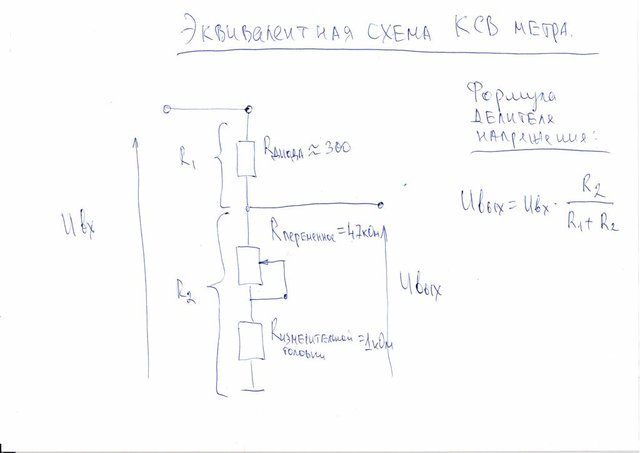 Эквивалентная схема КСВ метра.
Формула
делителя
напряжения:
Uвых = Uвх · R2
R1 + R2
R1
Rдиода ≈ 300
Uвх
Rпеременное = 47кОм
R2
Uвых
Rизмерительной = 1кОм
головки